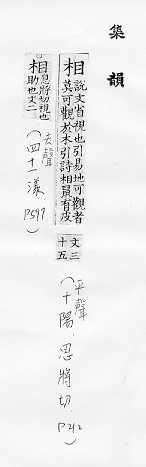 集韻
相 說文省視也引易地可觀者
莫可觀於木引詩相鼠有皮
文三
十五
(平聲
十陽.思將切.P212)
相 思將切視也
助也文二
去聲
(四十一漾
P597)